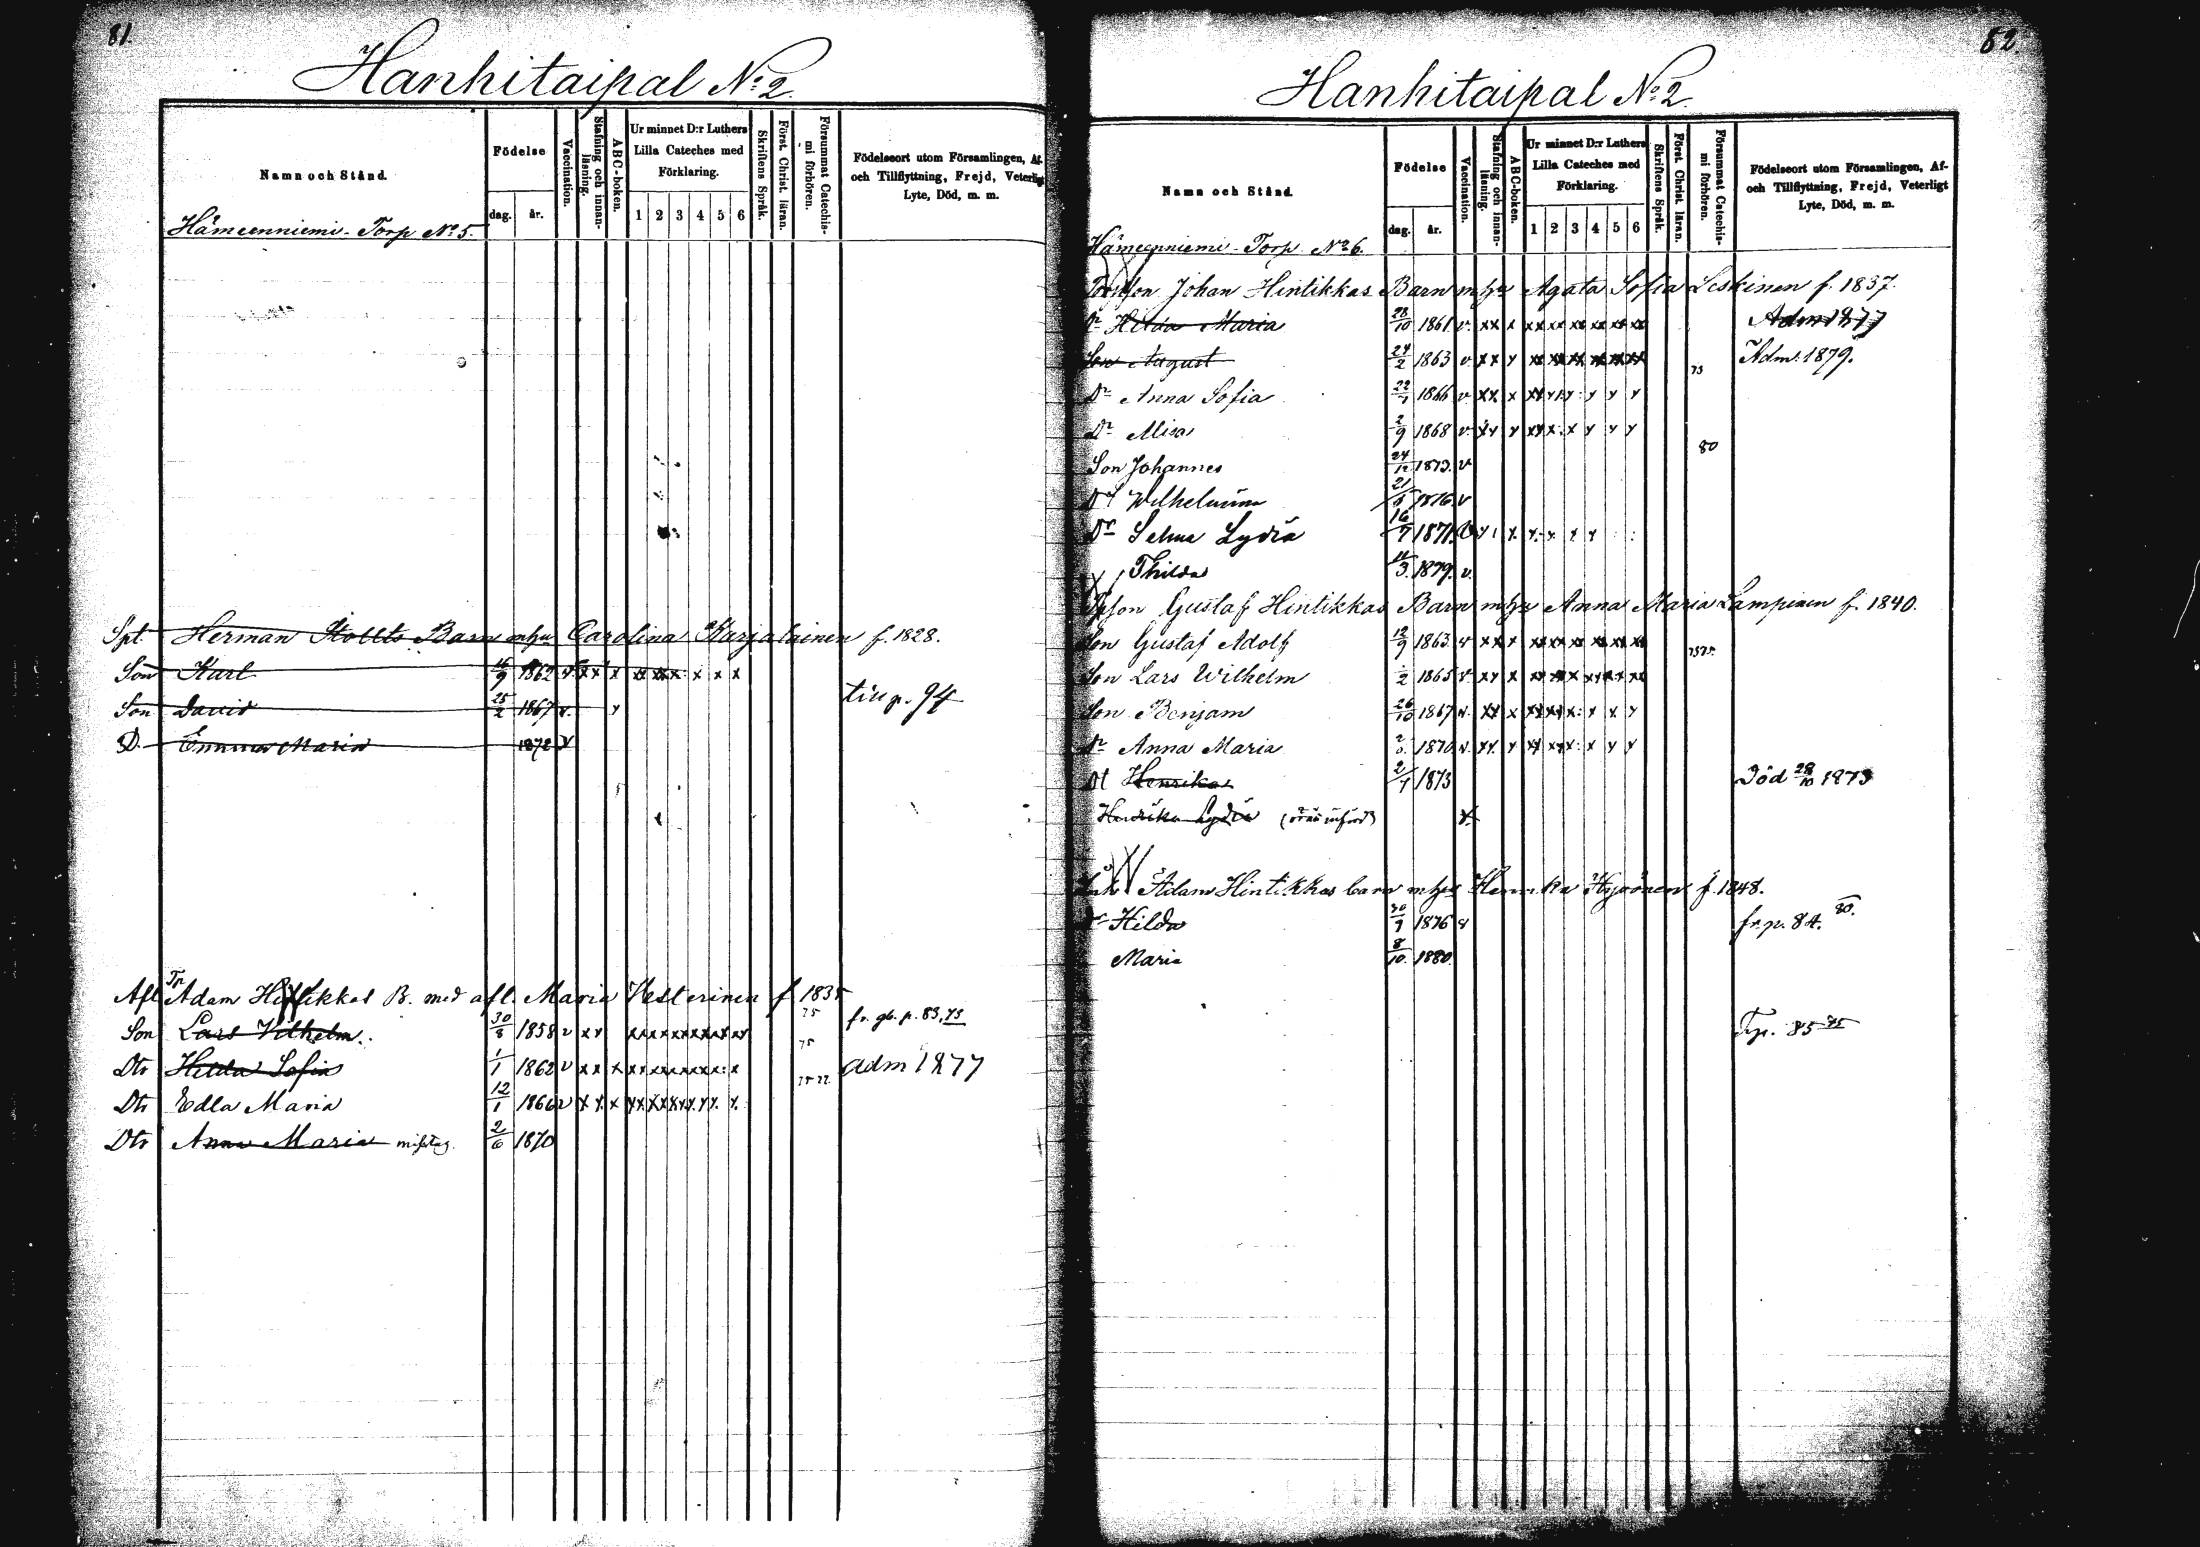 81.
Hanhitaipal No. 2.
Namn och Stånd.
Födelse
dag. år.
Vaccination.
Stafning och innanläsning.
ABC-boken.
Ur minnet D:r Luthers Lilla Cateches med Förklaring.
1 2 3 4 5 6
Skriftens Språk.
Först. Christ. läran.
Försummat Catechismi förhören.
Födelseort utom Församlingen, Af- och Tillflyttning, Frejd, Veterligt Lyte, Död, m. m.
Hämeenniemi - Torp No. 5.
Spt Herman Stollts Barn mhu Carolina Karjalainen f. 1828.
Son Karl 1862 v xx x xx xx x x x x
Son David 25/2 1867 v. till p. 94
D. Emma Maria 1872 v
Afl. Tp Adam Hintikkas B. med afl. Maria Kesterinen f 1835
Son Lars Vilhelm. 30/8 1858 v 75 fr. gb. p. 83, 73
Dtr Hilda Sofia 1/1 1862 v 75 adm 1877
Dtr Edla Maria 12/1 1866 v
Dtr Anna Maria misstag. 2/6 1870
82.
Hanhitaipal No. 2.
Namn och Stånd.
Födelse
dag. år.
Vaccination.
Stafning och innanläsning.
ABC-boken.
Ur minnet D:r Luthers Lilla Cateches med Förklaring.
1 2 3 4 5 6
Skriftens Språk.
Först. Christ. läran.
Försummat Catechismi förhören.
Födelseort utom Församlingen, Af- och Tillflyttning, Frejd, Veterligt Lyte, Död, m. m.
Hämeenniemi - Torp No. 6.
Johan Hintikkas Barn mhu Agata Sofia Leskinen f. 1837.
Dr Hilda Maria 28/10 1861 v. Adm 1877
Son August 24/2 1863 v 73 Adm. 1879.
Dr Anna Sofia 1866 v
Dr Miina 2/9 1868 v. 80
Son Johannes 24/12 1873. v
Dr Wilhelmina 1876 v
Dr Selma Lydia 16/7 1871. v
Thilda 3 1879. v.
Gustaf Hintikkas Barn mhu Anna Maria Lampinen f. 1840.
Son Gustaf Adolf 12/9 1863 v 1875
Son Lars Wilhelm 2 1865 v
Son Benjam 26/10 1867 v.
Dr Anna Maria 1870 v.
Dt Henrika 1873 Död 28/10 1873
Henrika Lydia v.
Adam Hintikkas barn mhu Henrika Hyvönen f. 1848.
Dr Hilda 30/9 1876 v fr. p. 84. 80.
Maria 8/10. 1880.
Fr p. 85 75